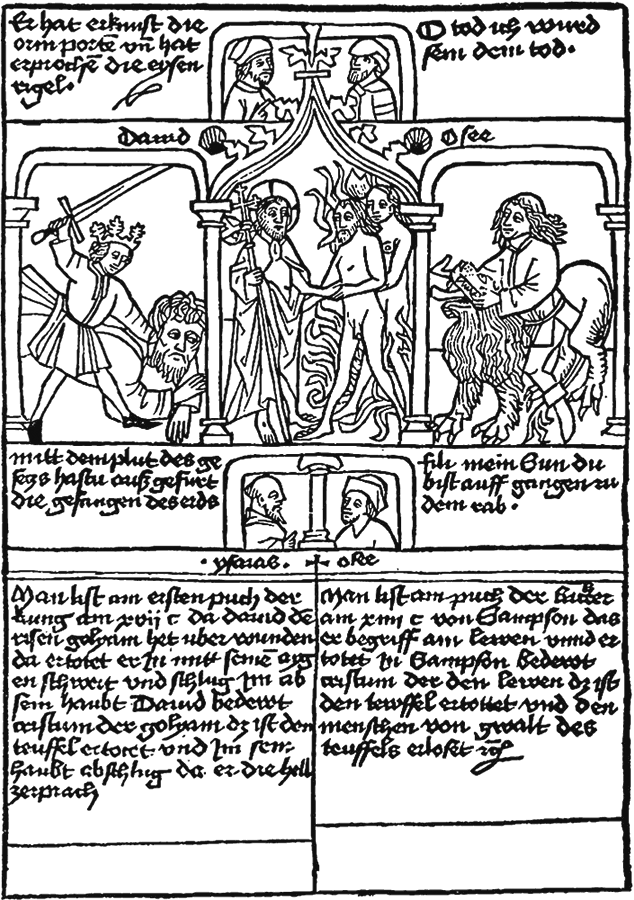 Er hat erknist die
orin porten vn̄ hat
erprochē die eysen
rigel.
O tod ich wurd
sein dem tod.
Dauid
Osee
mitt dem plut des ge
secz hastu auß gefurt
die gefangen des erds
fili mein Sun du
bist auff gangen zu
dem rab.
ysaias. osee
Man list am ersten puch der
kung am xvij c da dauid dē
risen golyam het uber wunden
da ertotet er in mitt seinē aig
en schwert vnd schlug im ab
sein haubt Dauid bedewt
cristum der golyam dz ist den
teuffel ertotet vnd im sein
haubt abschlug da er die hell
zerprach
Man list am puch der
am xiiii c von Sampson das
er begriff am lewen vnnd er
totet in Sampson bedewt
cristum der den lewen dz ist
den tewffel ertottet vnd den
menschen von gwalt des
teuffels erloset